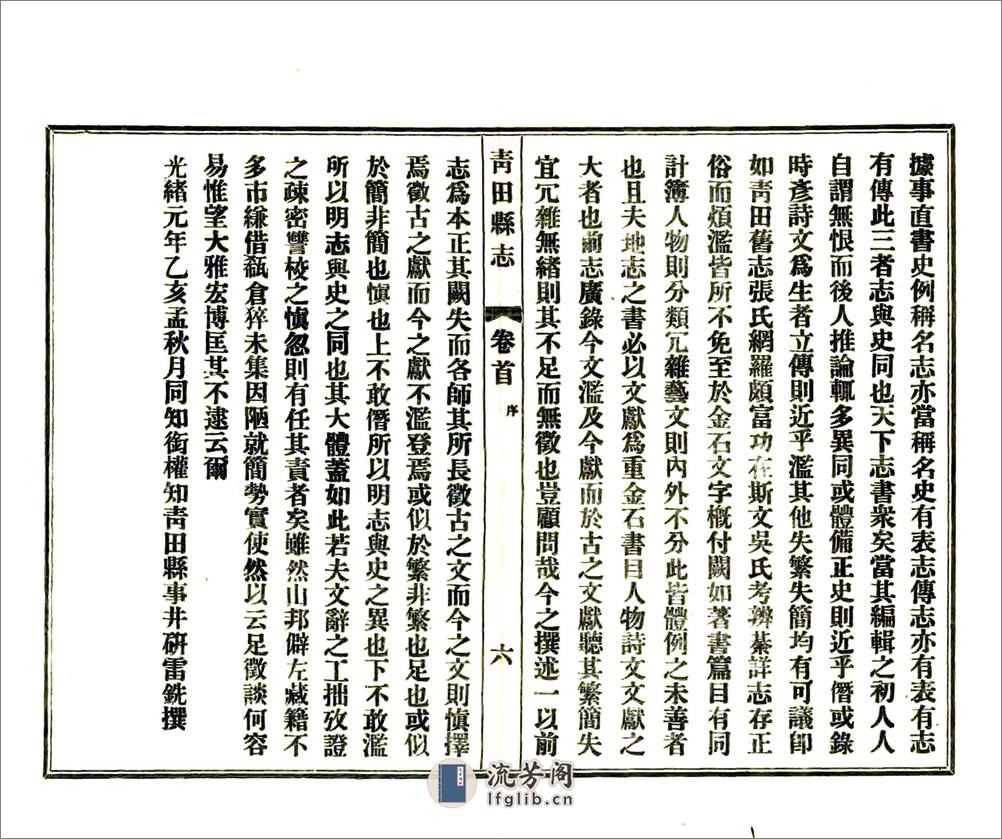 據事直書史例稱名志亦當稱名史有表志傳志亦有表有志
有傳此三者志與史同也天下志書衆矣當其編輯之初人人
自謂無恨而後人推論輒多異同或體備正史則近乎僭或錄
時彥詩文爲生者立傳則近乎濫其他失繁失簡均有可議卽
如靑田舊志張氏網羅頗富功在斯文吳氏考辨綦詳志存正
俗而煩濫皆所不免至於金石文字槪付闕如著書篇目有同
計簿人物則分類冗雜藝文則內外不分此皆體例之未善者
也且夫地志之書必以文獻爲重金石書目人物詩文文獻之
大者也前志廣錄今文濫及今獻而於古之文獻聽其繁簡失
宜冗雜無緒則其不足而無徵也豈顧問哉今之撰述一以前
靑田縣志 卷首 序 六
志爲本正其闕失而各師其所長徵古之文而今之文則愼擇
焉徵古之獻而今之獻不濫登焉或似於繁非繁也足也或似
於簡非簡也愼也上不敢僭所以明志與史之異也下不敢濫
所以明志與史之同也其大體蓋如此若夫文辭之工拙攷證
之疎密讐校之愼忽則有任其責者矣雖然山邦僻左藏籍不
多市縑借瓻倉猝未集因陋就簡勢實使然以云足徵談何容
易惟望大雅宏博匡其不逮云爾
光緒元年乙亥孟秋月同知銜權知靑田縣事井硏雷銑撰
流芳阁
lfglib.cn